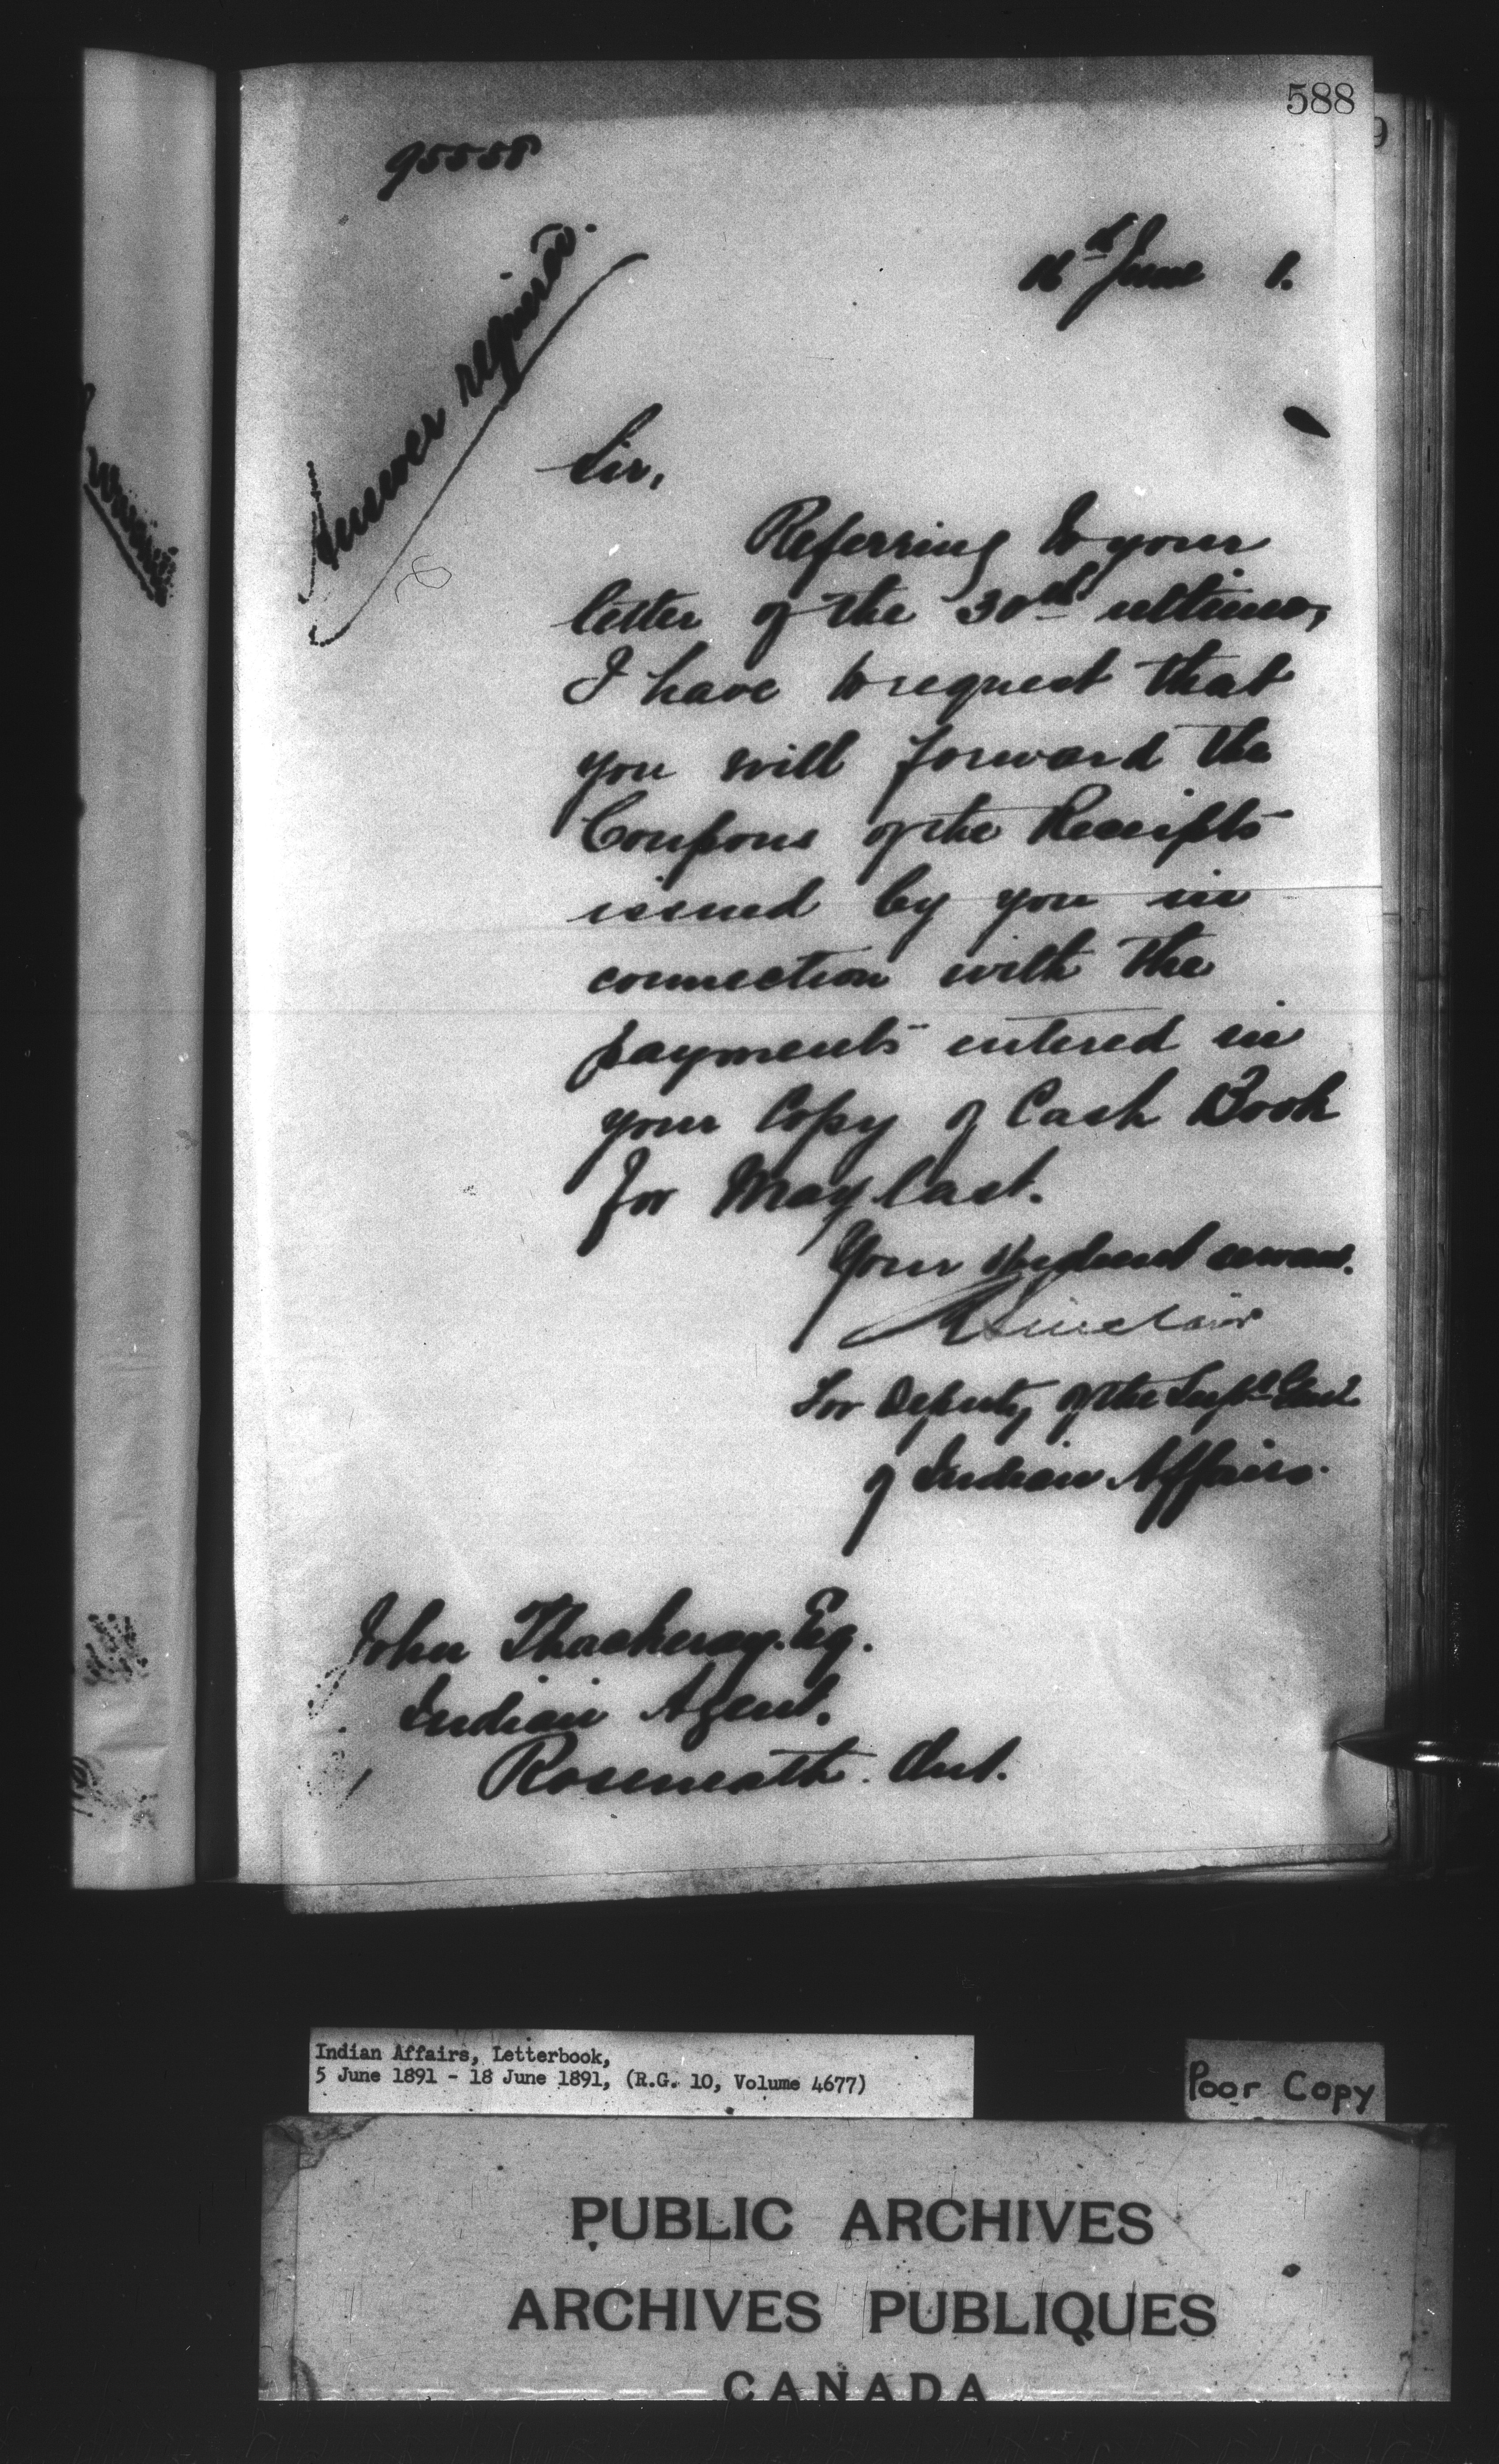 588
95558
16th June 1.
Answer required.
Sir,
Referring to your
letter of the 30th ultimo,
I have to request that
you will forward the
Coupons of the Receipts
issued by you in
connection with the
payments entered in
your Copy of Cash Book
for May last.
Your obedient servant.
Sinclair
For Deputy of the Supt Genl
of Indian Affairs.
John Thackeray. Esq.
Indian Agent.
Roseneath. Ont.
Indian Affairs, Letterbook,
5 June 1891 - 18 June 1891, (R.G. 10, Volume 4677)
Poor Copy
PUBLIC ARCHIVES
ARCHIVES PUBLIQUES
CANADA